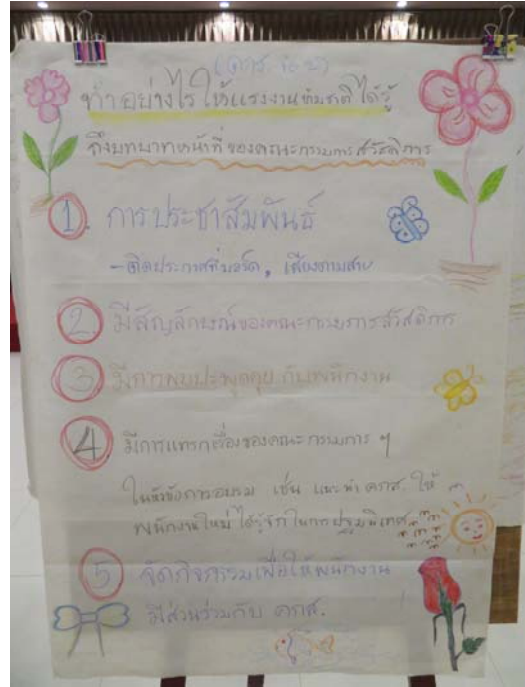 ทำอย่างไรให้แรงงานข้ามชาติได้รู้
ถึงบทบาทหน้าที่ของคณะกรรมการสวัสดิการ
1. การประชาสัมพันธ์
- ติดประกาศที่บอร์ด, เสียงตามสาย
2 มีสัญลักษณ์ของคณะกรรมการสวัสดิการ
3 มีการพบปะพูดคุย กับพนักงาน
4. มีการแทรกเรื่องของคณะกรรมการ ๆ
ในหัวข้อการอบรม เช่น แนะนำ คกส. ให้
พนักงานใหม่ ได้รู้จักในการปฐมนิเทศ
5 จัดกิจกรรมเพื่อให้พนักงาน
มีส่วนร่วมกับ คกส.